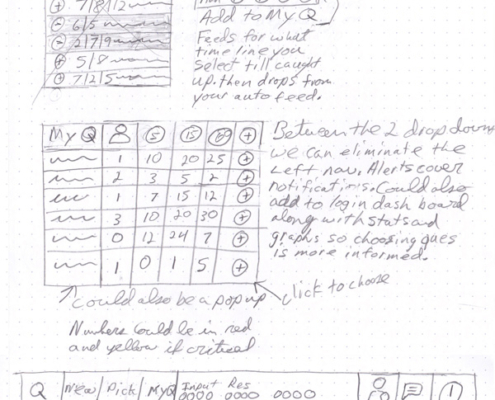 ⊕ 7/8/12
⊖ 6/5
⊖ 2/7/9
⊕ 5/8
⊕ 7/2/5
Add to My Q
Feeds for what
time line you
select till caught
up. then drops from
your auto feed.
My Q 5 15 +
1 10 20 25 ⊕
2 3 5 2 ⊕
1 7 15 12 ⊕
3 10 20 30 ⊕
0 12 24 7 ⊕
1 0 1 5 ⊕
Between the 2 drop downs
we can eliminate the
Left nav. Alerts cover
notifications. Could also
add to login dash board
along with stats and
graphs so choosing ques
is more informed.
Could also be a pop up
click to choose
Numbers could be in red
and yellow if critical
Q New/Pick/MyQ Input Res